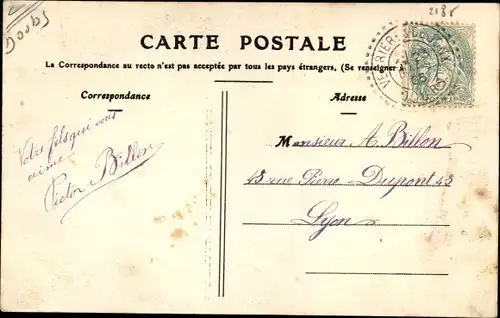 Doubs
2188
CARTE POSTALE
La Correspondance au recto n'est pas acceptée par tous les pays étrangers. (Se renseigner à
Correspondance
Adresse
Votre fils qui vous
aime
Victor Billon
Monsieur A. Billon
43 rue Pierre Dupont 43
Lyon